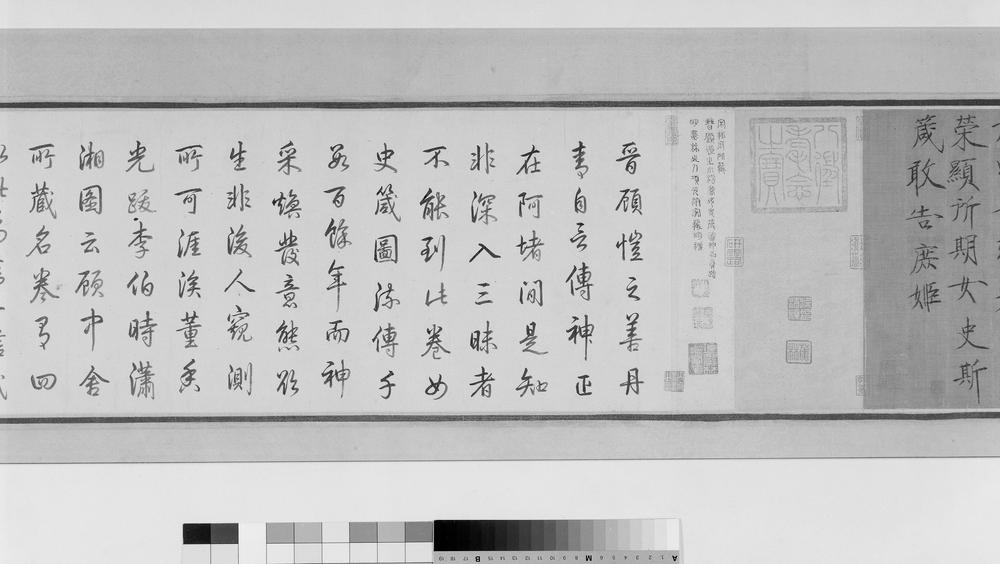 榮顯所期女史斯
箴敢告庶姬
八徵
耄念
之寶
晉顧愷之善丹
青自言傳神正
在阿堵間是知
非深入三昧者
不能到此卷女
史箴圖流傳千
百餘年而神
采煥發意態欲
生非後人窺測
所可涯涘董香
光跋李伯時瀟
湘圖云顧中舍
所藏名卷有四